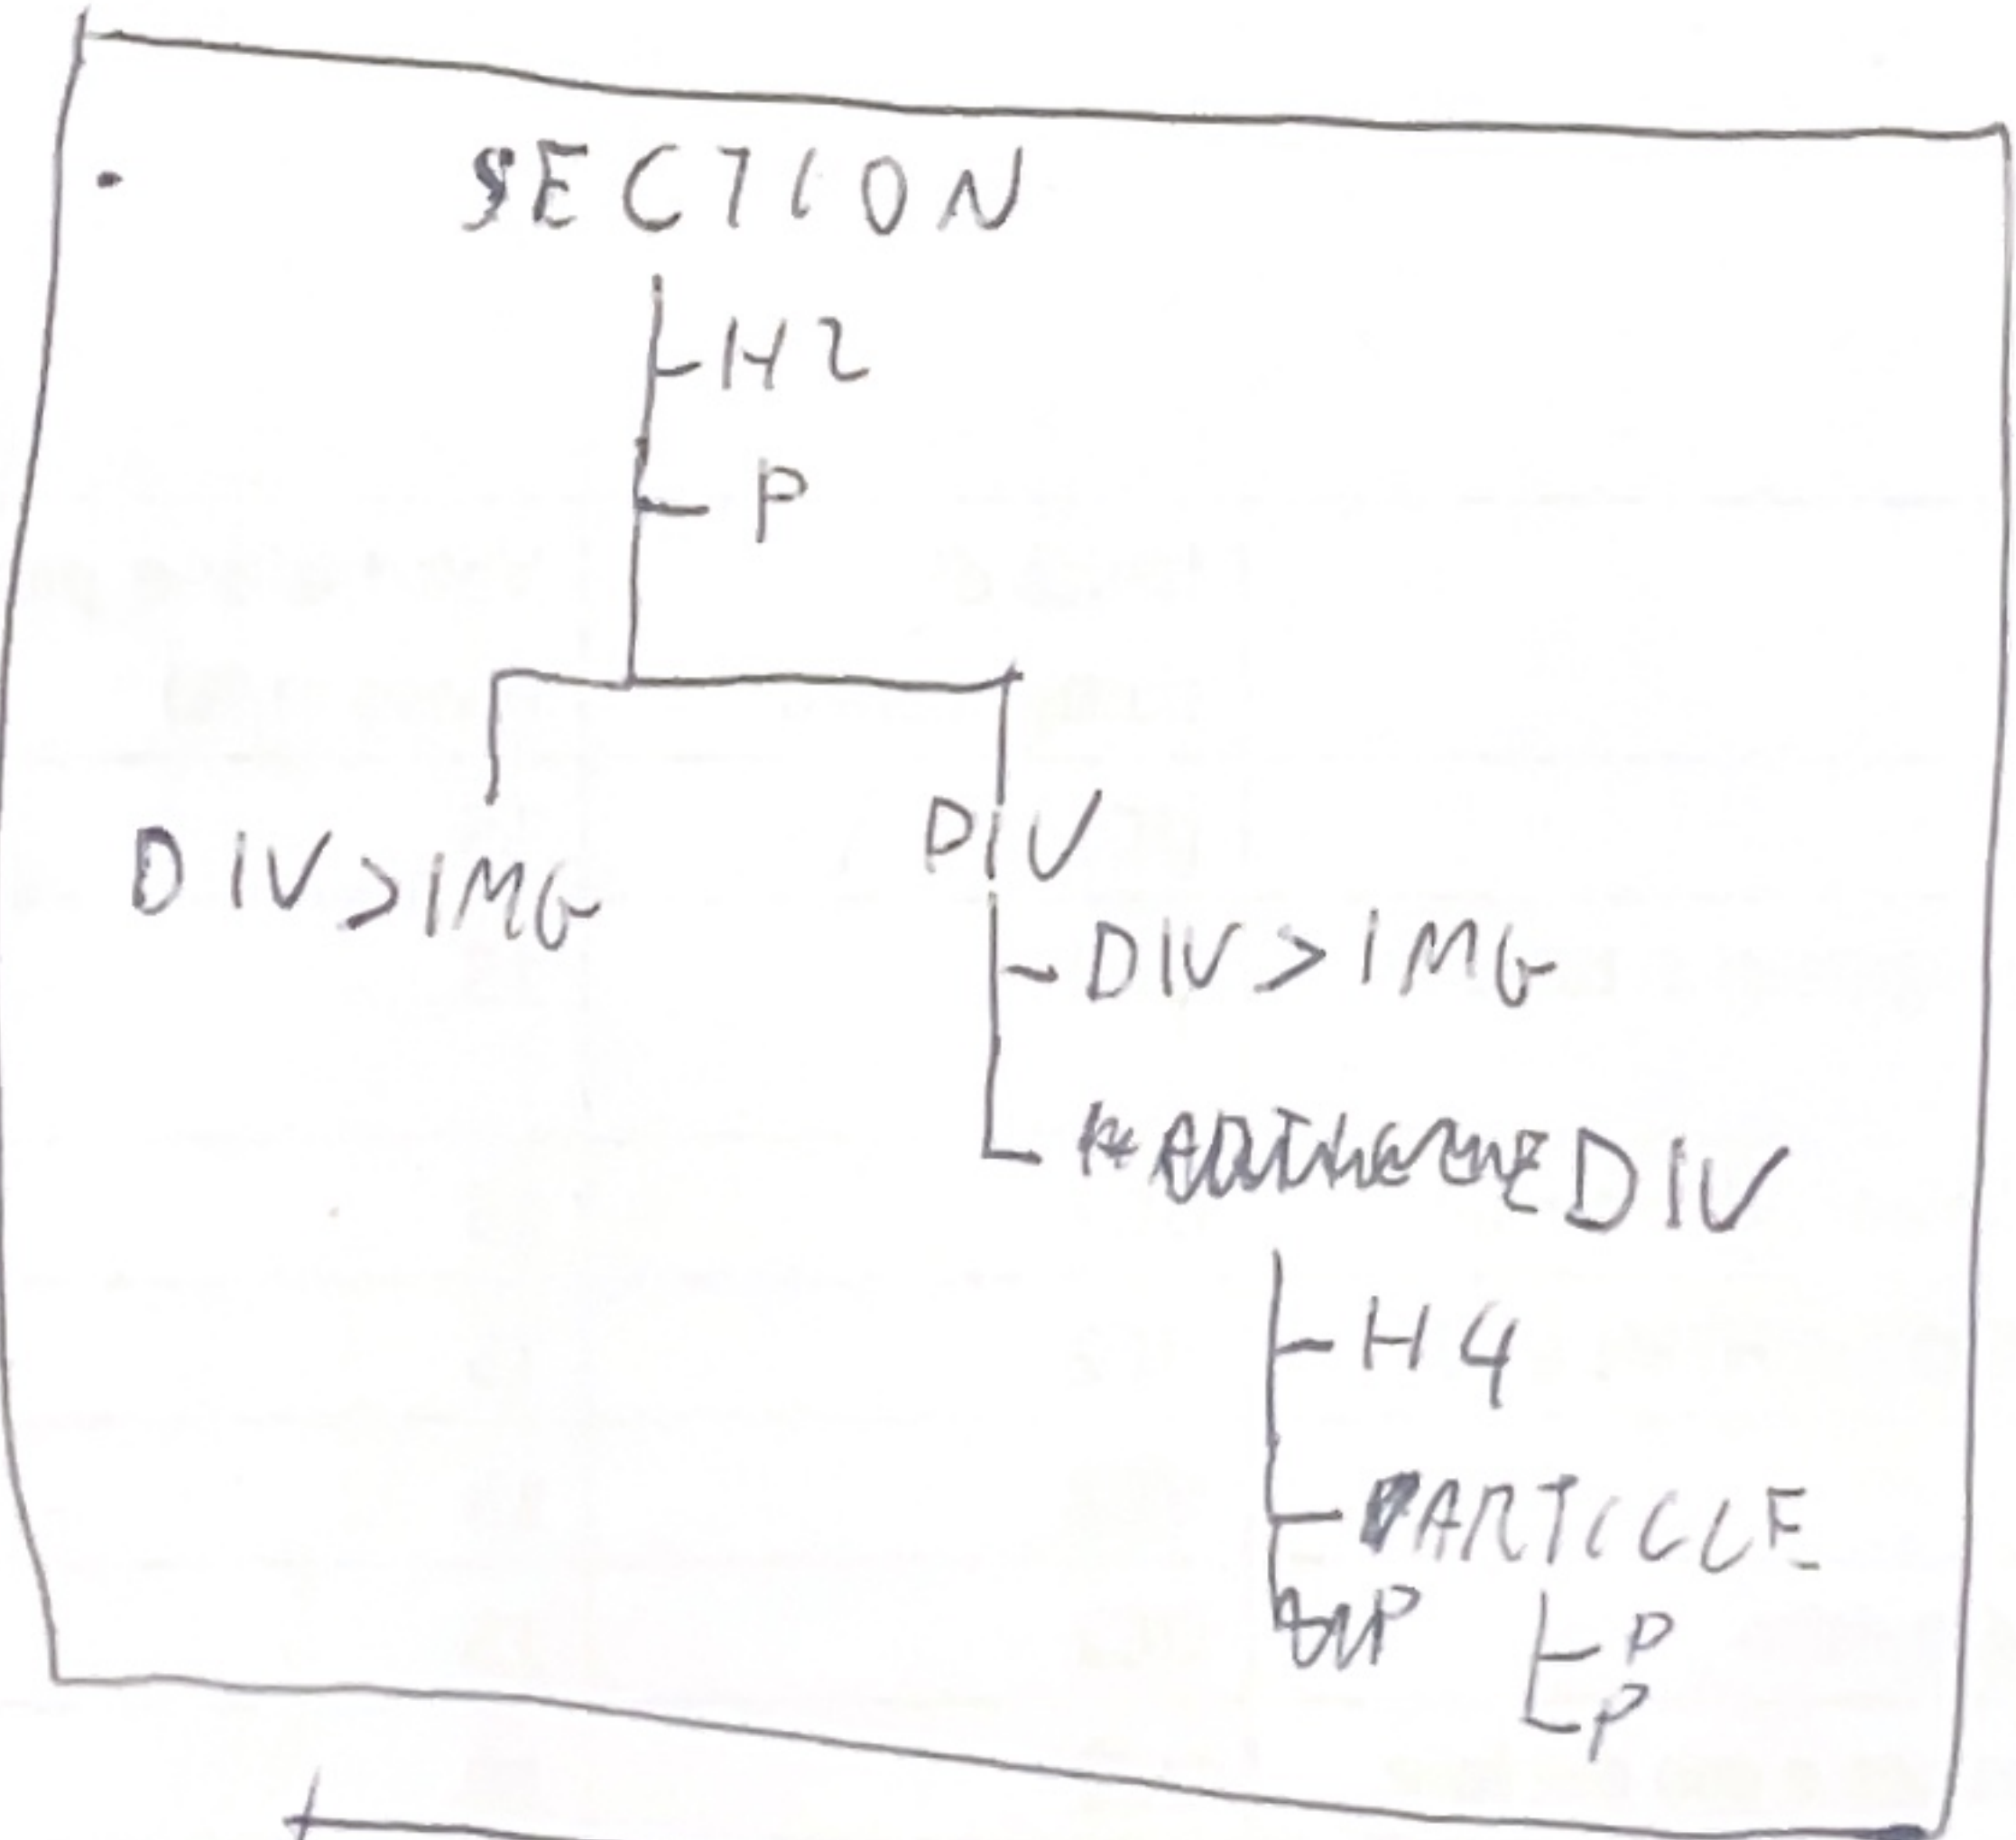 SECTION
H2
P
DIV>IMG
DIV
DIV>IMG
DIV
H4
ARTICLE
P
P